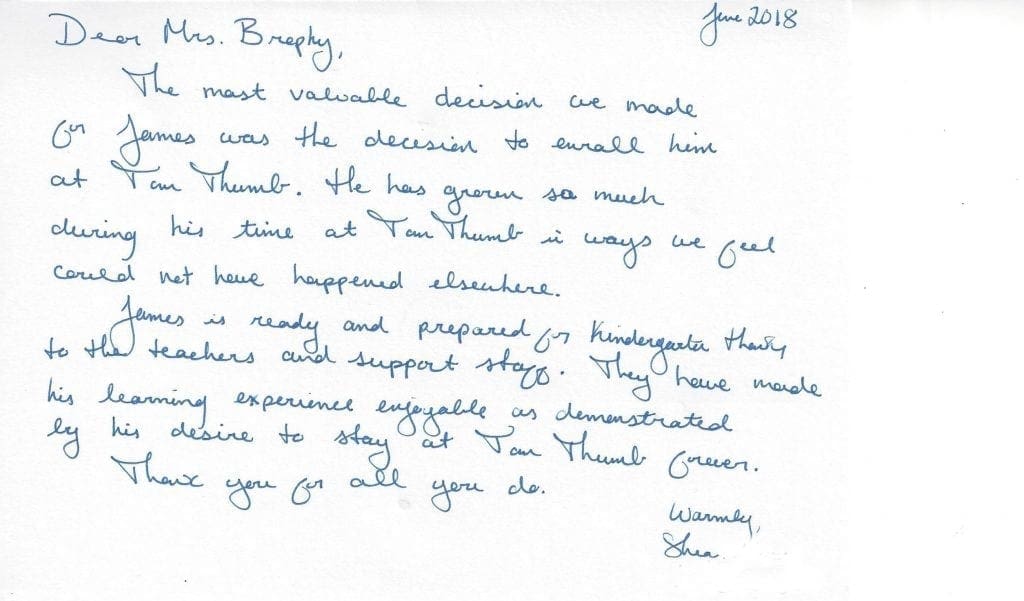 June 2018
Dear Mrs. Brophy,
The most valuable decision we made
for James was the decision to enroll him
at Tom Thumb. He has grown so much
during his time at Tom Thumb in ways we feel
could not have happened elsewhere.
James is ready and prepared for Kindergarten thanks
to the teachers and support staff. They have made
his learning experience enjoyable as demonstrated
by his desire to stay at Tom Thumb forever.
Thank you for all you do.
Warmly,
Shea